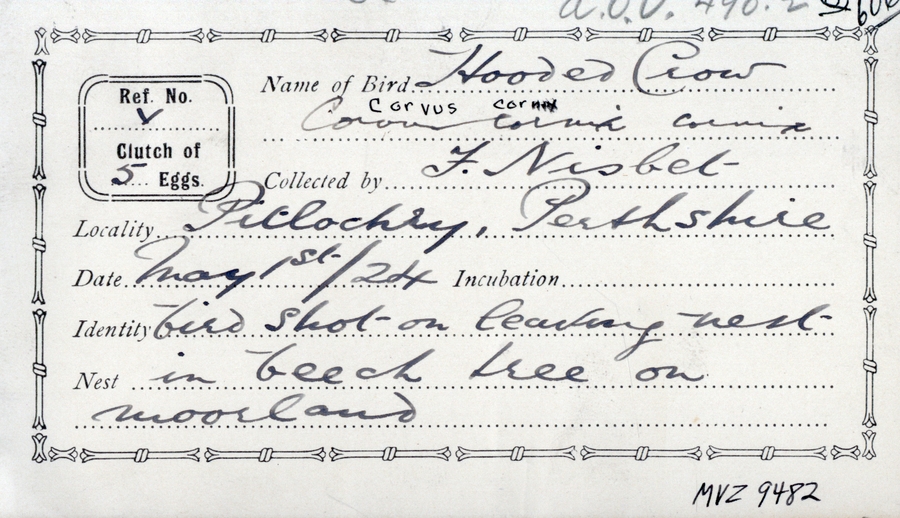 A.O.U. 498.2
Name of Bird Hooded Crow
Corvus cornix
Corvus cornix cornix
Ref. No.
v
Clutch of
5 Eggs.
Collected by F. Nisbet
Locality Pitlochry, Perthshire
Date May 1st/24 Incubation
Identity bird shot on leaving nest
Nest in beech tree on
moorland
MVZ 9482